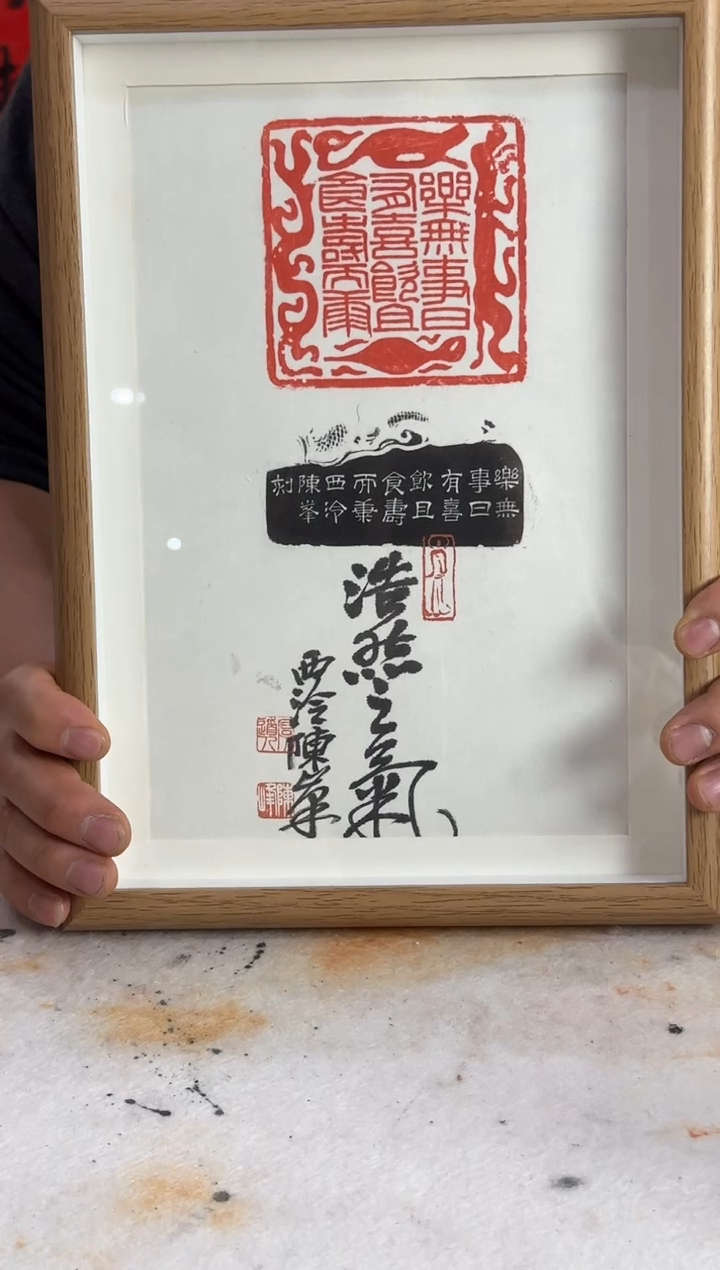 樂無事日
有喜飲且
食壽而康
樂無
事日
有喜
飲且
食壽
而康
西泠
陳峯
刻
浩然之氣
西泠陳峯
陳峰